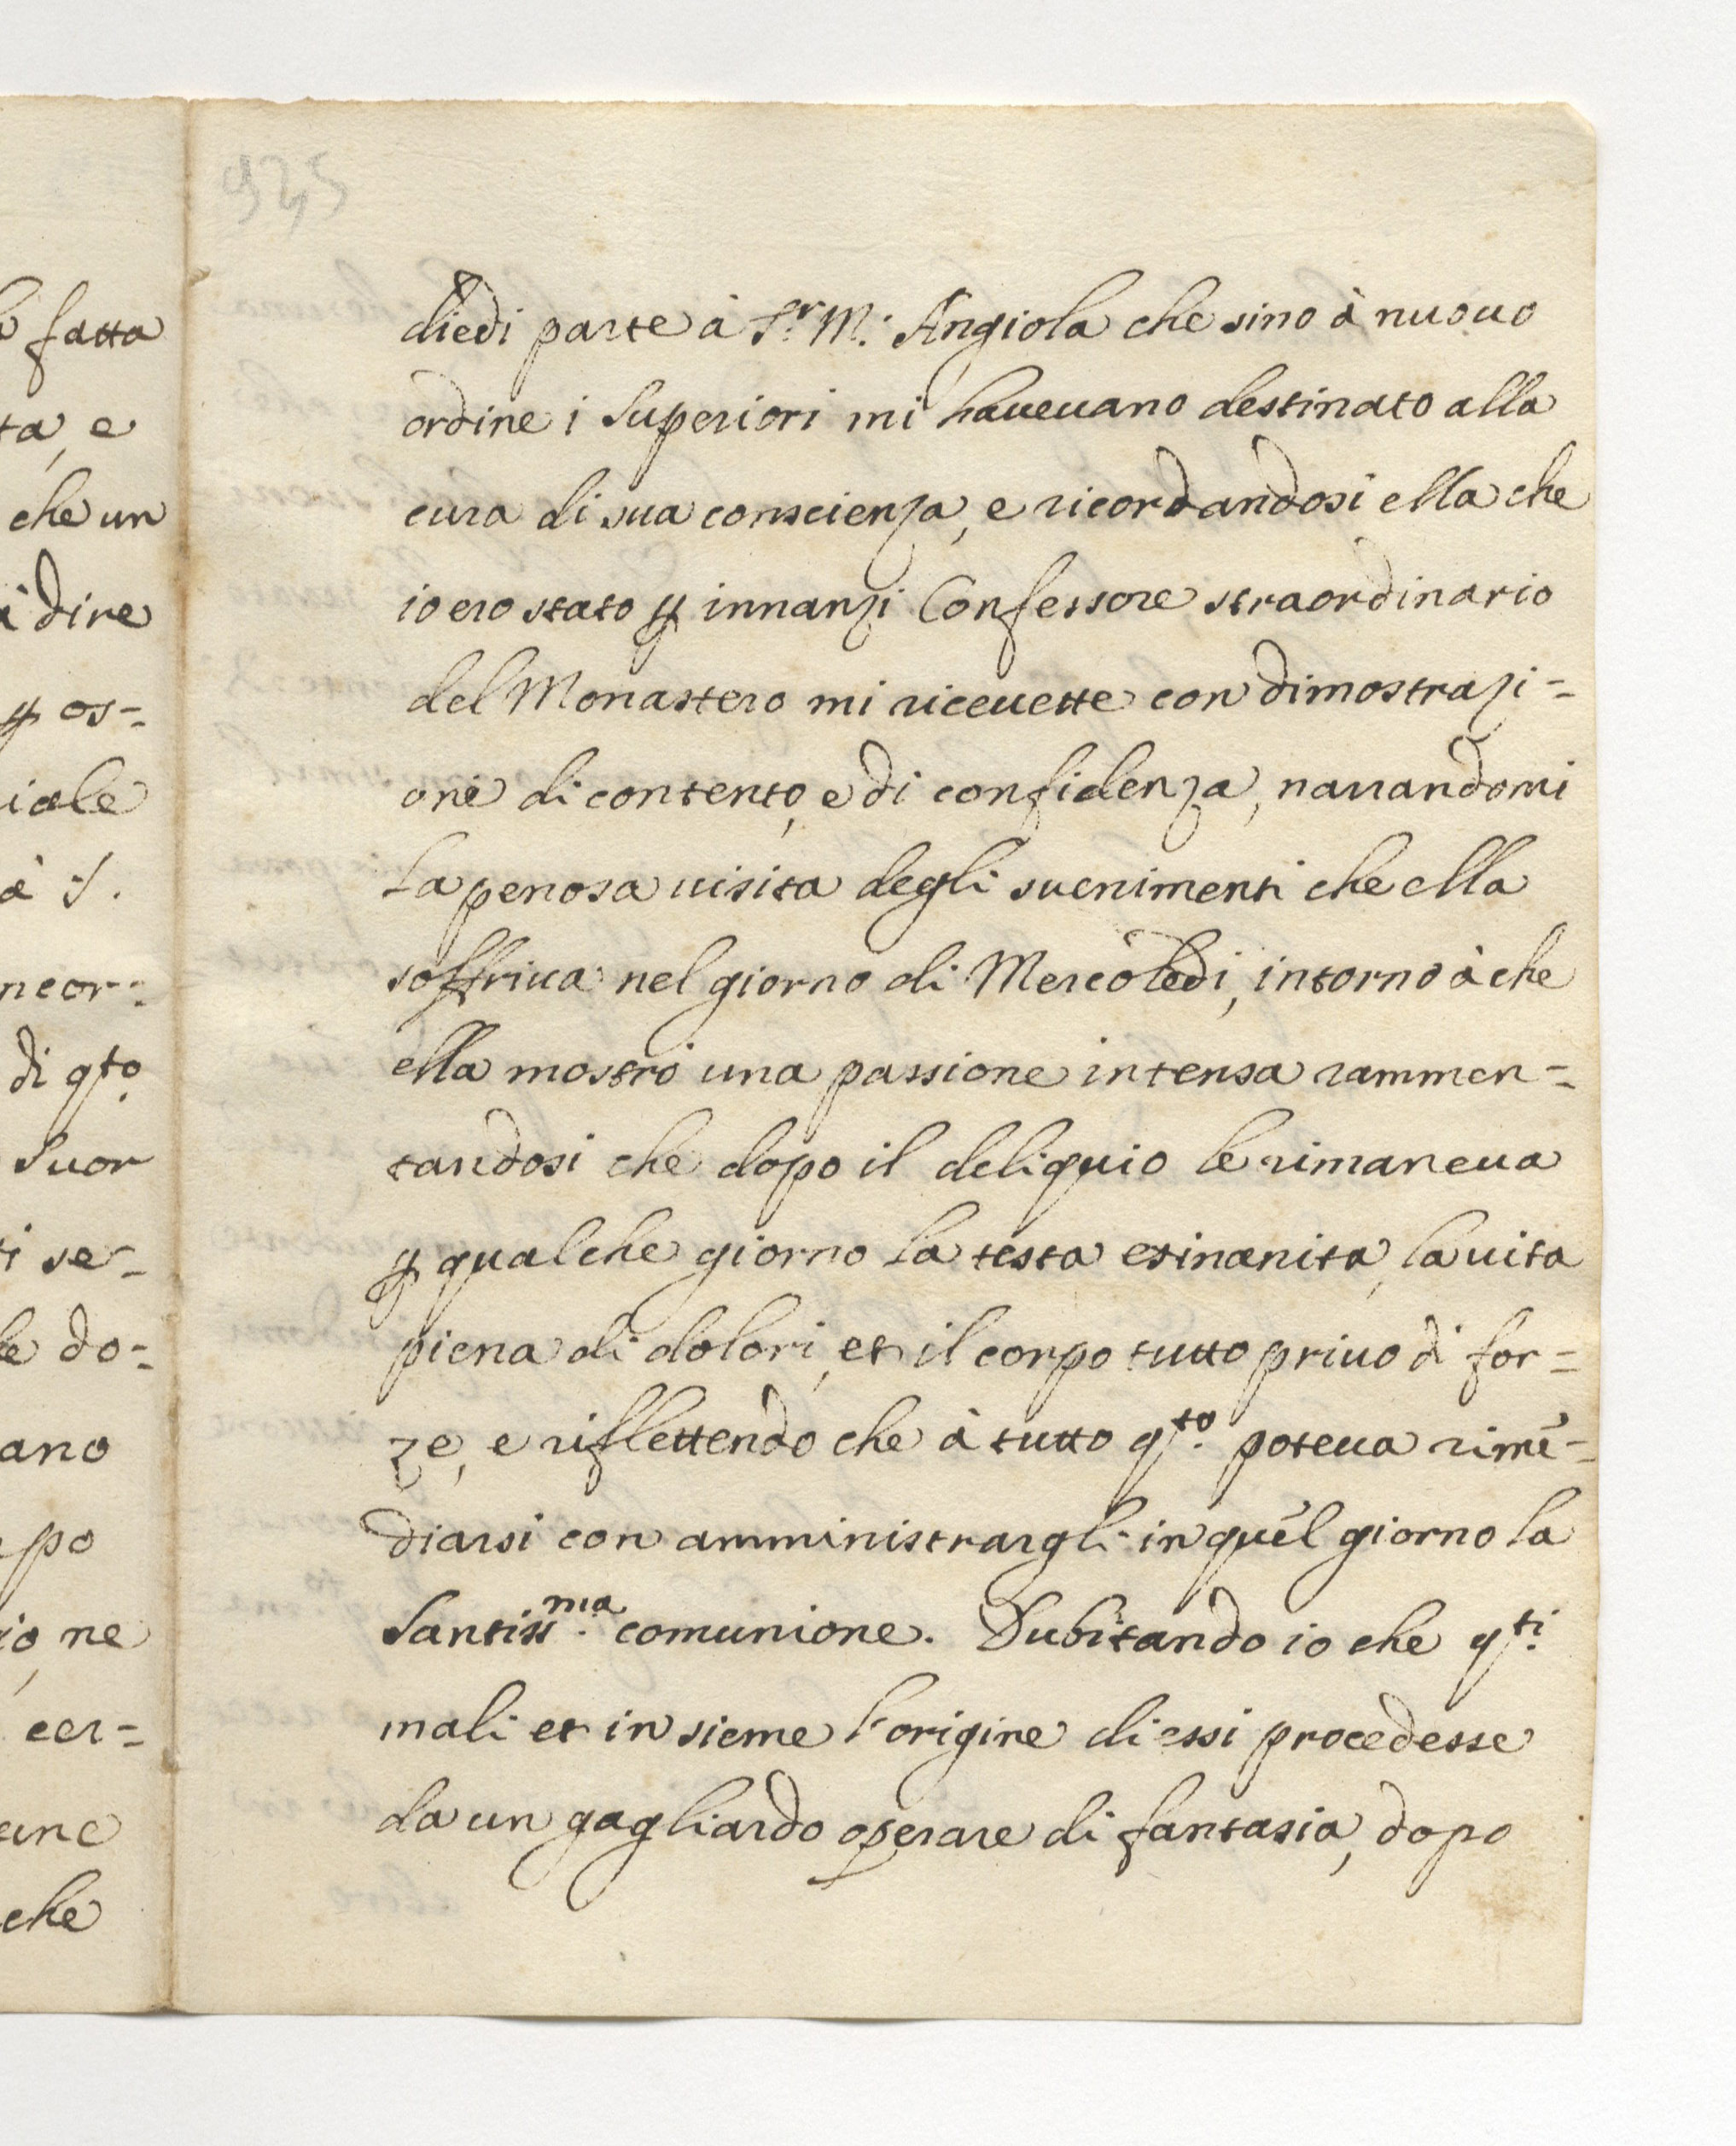 925
fatta
ta, e
che un
à dire
ꝑ os=
iale
à S.
ncor=
di qto.
Suor
ti se=
le do=
ano
po
io, ne
cer=
anc
che
diedi parte à Sr. M. Angiola che sino à nuouo
ordine i Superiori mi haueuano destinato alla
cura di sua conscienza, e ricordandosi ella che
io ero stato ꝑ innanzi Confessore straordinario
del Monastero mi riceuette con dimostrazi=
one di contento, e di confidenza, narrandomi
la penosa uisita degli suenimenti che ella
soffriua nel giorno di Mercoledi, intorno à che
ella mostrò una passione intensa rammen=
tandosi che dopo il deliquio le rimaneua
ꝑ qualche giorno la testa esinanita, la uita
piena di dolori, et il corpo tutto priuo di for=
ze, e riflettendo che à tutto qto. poteua rime=
diarsi con amministrargli in quel giorno la
Santiss.ma comunione. Dubitando io che qti.
mali et in sieme l'origine di essi procedesse
da un gagliardo operare di fantasia, dopo